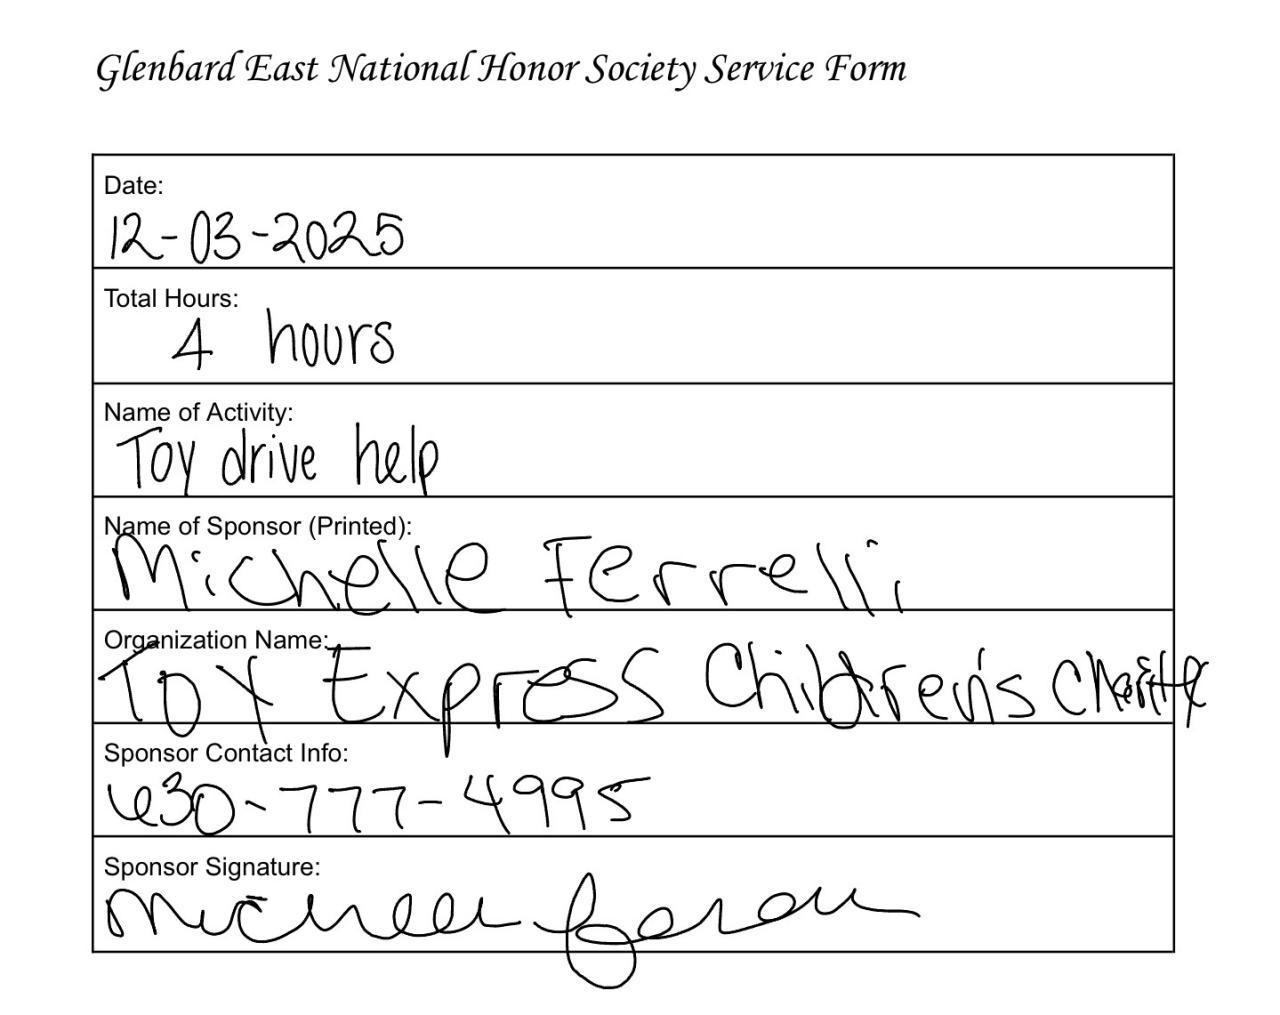 Glenbard East National Honor Society Service Form
Date:
12-03-2025
Total Hours:
4 hours
Name of Activity:
Toy drive help
Name of Sponsor (Printed):
Michelle Ferrelli
Organization Name:
Toy Express Children's Charity
Sponsor Contact Info:
630-777-4995
Sponsor Signature: